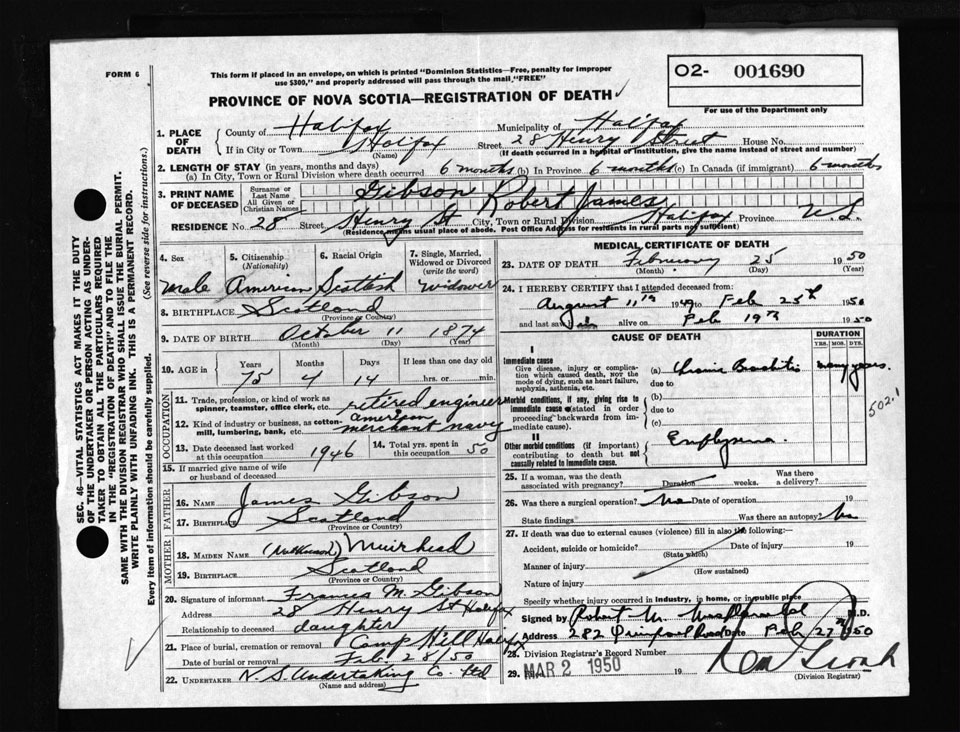 FORM 6
This form if placed in an envelope, on which is printed "Dominion Statistics—Free, penalty for improper
use $300," and properly addressed will pass through the mail "FREE"
O2- 001690
For use of the Department only
PROVINCE OF NOVA SCOTIA—REGISTRATION OF DEATH
SEC. 46—VITAL STATISTICS ACT MAKES IT THE DUTY
OF THE UNDERTAKER OR PERSON ACTING AS UNDER-
TAKER TO OBTAIN ALL THE PARTICULARS REQUIRED
IN THE "REGISTRATION OF DEATH" AND TO FILE THE
SAME WITH THE DIVISION REGISTRAR WHO SHALL ISSUE THE BURIAL PERMIT.
WRITE PLAINLY WITH UNFADING INK. THIS IS A PERMANENT RECORD.
Every item of information should be carefully supplied. (See reverse side for instructions.)
1. PLACE OF DEATH County of Halifax Municipality of Halifax
If in City or Town Halifax Street 28 Henry Street House No.
(Name) (If death occurred in a hospital or institution, give the name instead of street and number)
2. LENGTH OF STAY (in years, months and days)
(a) In City, Town or Rural Division where death occurred 6 months (b) In Province 6 months (c) In Canada (if immigrant) 6 months
3. PRINT NAME OF DECEASED Surname or Last Name Gibson
All Given or Christian Names Robert James
RESIDENCE No. 28 Street Henry St City, Town or Rural Division Halifax Province N.S.
(Residence means usual place of abode. Post Office Address for residents in rural parts not sufficient)
4. Sex 5. Citizenship (Nationality) 6. Racial Origin 7. Single, Married, Widowed or Divorced (write the word)
male American Scottish widower
8. BIRTHPLACE Scotland
(Province or Country)
9. DATE OF BIRTH October 11 1874
(Month) (Day) (Year)
10. AGE in Years Months Days If less than one day old
75 4 14 hrs. or min.
OCCUPATION
11. Trade, profession, or kind of work as
spinner, teamster, office clerk, etc. retired engineer
12. Kind of industry or business, as cotton-
mill, lumbering, bank, etc. American merchant navy
13. Date deceased last worked at this occupation 1946 14. Total yrs. spent in this occupation 50
15. If married give name of wife
or husband of deceased
FATHER
16. NAME James Gibson
17. BIRTHPLACE Scotland
(Province or Country)
MOTHER
18. MAIDEN NAME Muirhead
19. BIRTHPLACE Scotland
(Province or Country)
20. Signature of informant Frances M. Gibson
Address 28 Henry St Halifax
Relationship to deceased daughter
21. Place of burial, cremation or removal Camp Hill Halifax
Date of burial or removal Feb. 28/50
22. UNDERTAKER N.S. Undertaking Co. Ltd
(Name and address)
MEDICAL CERTIFICATE OF DEATH
23. DATE OF DEATH February 25 1950
(Month) (Day) (Year)
24. I HEREBY CERTIFY that I attended deceased from:
August 11th 1949 to Feb 25th 1950
and last saw him alive on Feb 19th 1950
CAUSE OF DEATH DURATION
YRS. MOS. DYS.
I
Immediate cause
Give disease, injury or complica-
tion which caused death, NOT the
mode of dying, such as heart failure,
asphyxia, asthenia, etc.
(a) Chronic Bronchitis many years.
due to
Morbid conditions, if any, giving rise to
immediate cause (stated in order
proceeding backwards from im-
mediate cause).
(b)
due to
(c)
502.1
II
Other morbid conditions (if important)
contributing to death but not
causally related to immediate cause.
Emphysema.
25. If a woman, was the death associated with pregnancy? Duration weeks. Was there a delivery?
26. Was there a surgical operation? No Date of operation 19
State findings Was there an autopsy? No
27. If death was due to external causes (violence) fill in also the following:
Accident, suicide or homicide? Date of injury 19
(State which)
Manner of injury
(How sustained)
Nature of injury
Specify whether injury occurred in industry, in home, or in public place
Signed by Robert M. M.D.
Address 282 Road Date Feb 27th 1950
28. Division Registrar's Record Number
29. MAR 2 1950 19
(Division Registrar)